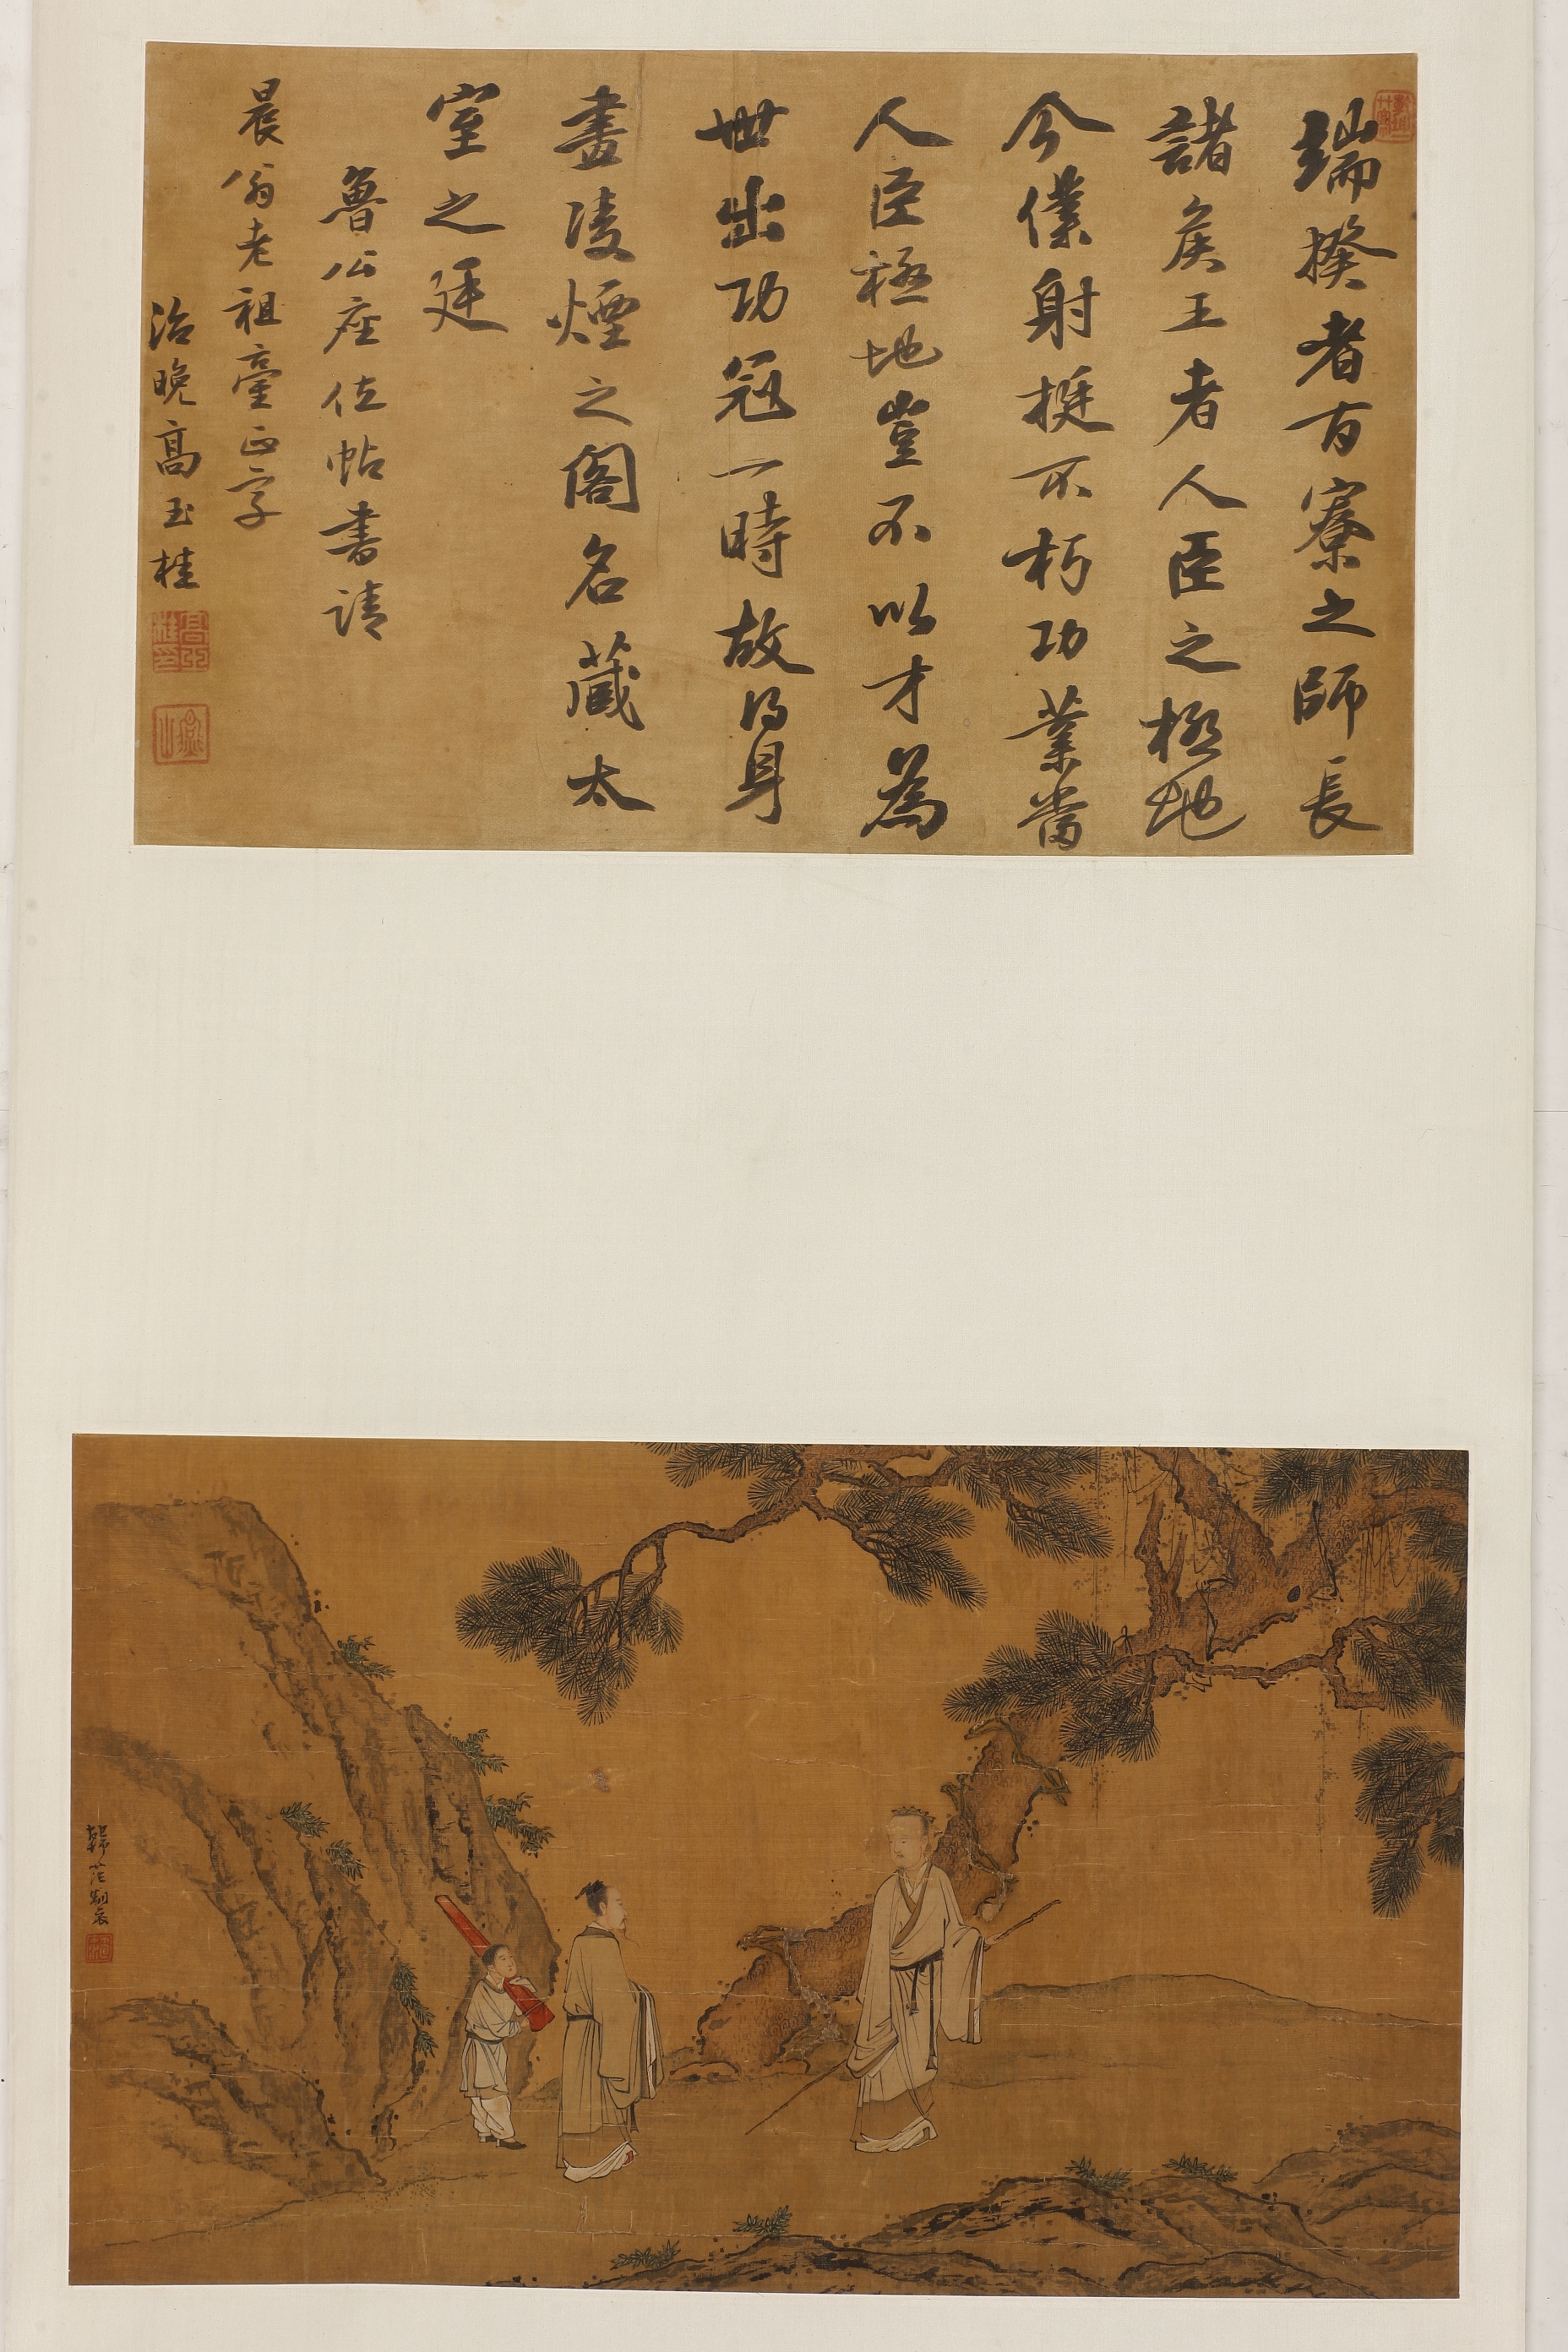 端揆者百寮之師長
諸矦王者人臣之極地
今僕射挺不朽功業當
人臣極地豈不以才為
世出功冠一時故得身
畫凌煙之閣名藏太
室之廷
魯公座位帖書請
晨翁老祖臺正字
治晚高玉桂
韓范